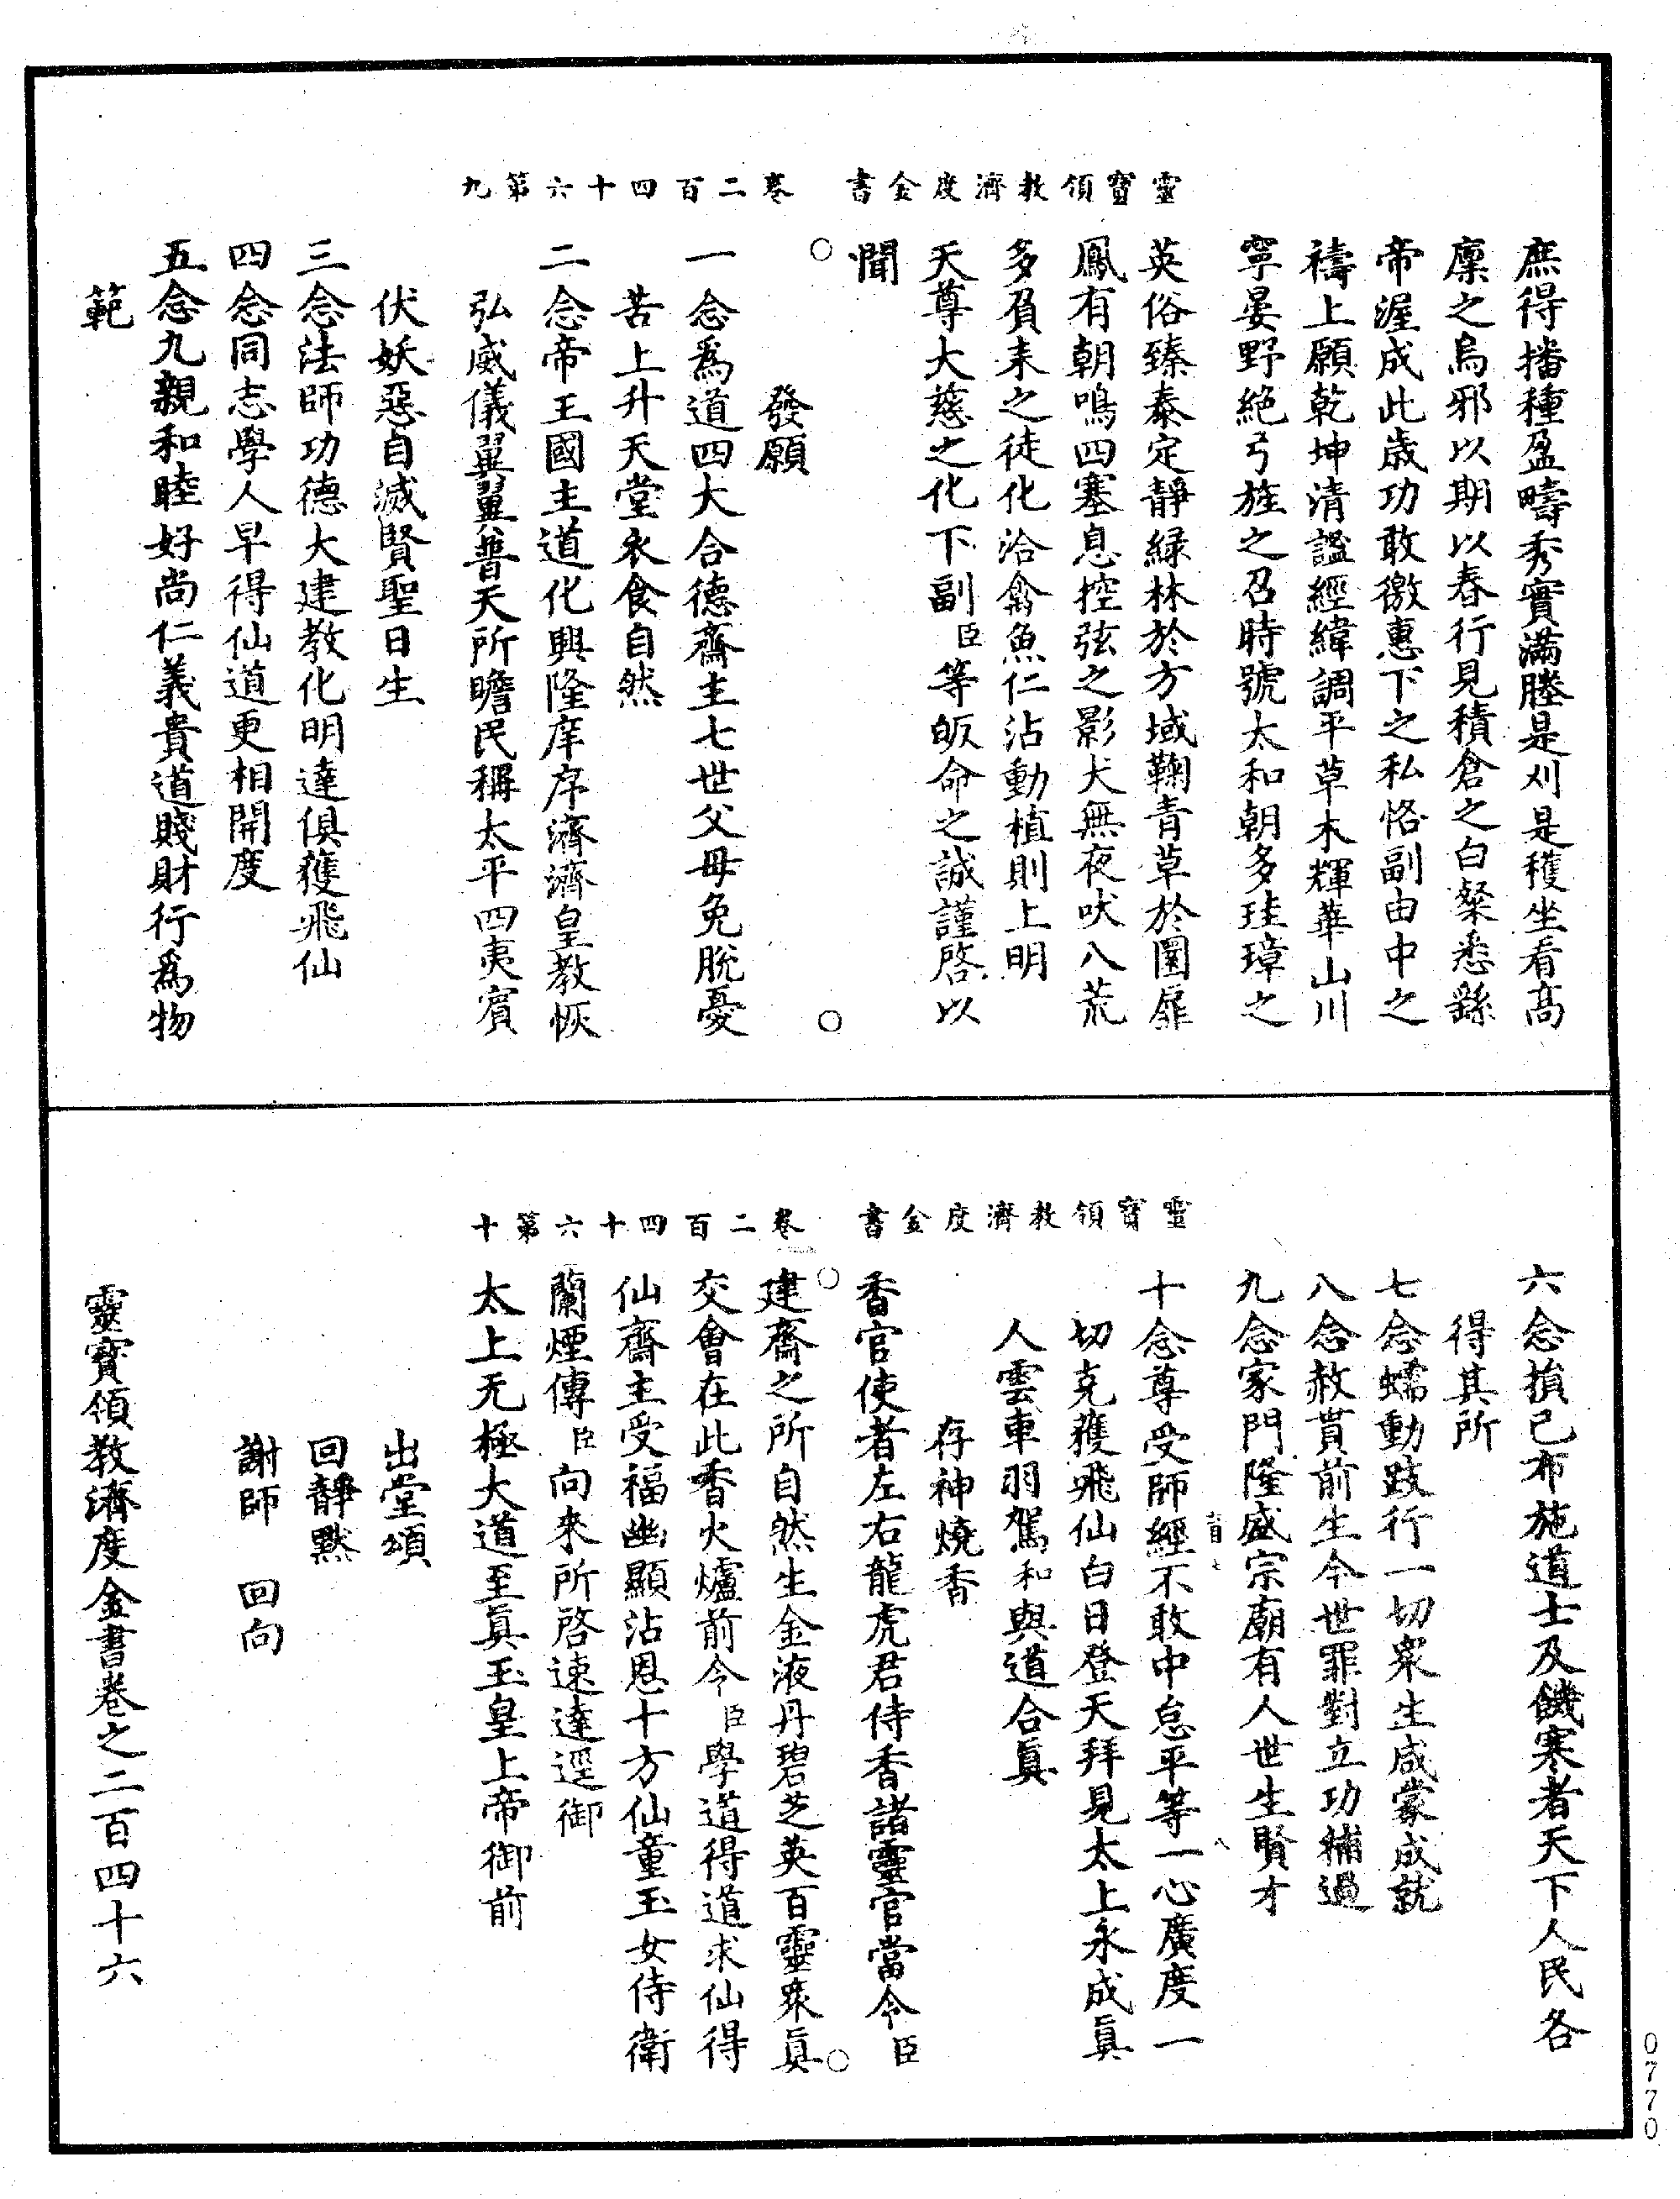 庶得播種盈疇秀實滿塍是刈是穫坐看高
廩之烏邪以期以春行見積倉之白粲悉繇
帝渥成此歲功敢徼惠下之私恪副由中之
禱上願乾坤清謐經緯調平草木輝華山川
寧晏野絶弓旌之召時號太和朝多珪璋之
英俗臻泰定靜緑林於方域鞠青草於圜扉
鳳有朝鳴四塞息控弦之影犬無夜吠八荒
多負耒之徒化洽禽魚仁沾動植則上明
天尊大慈之化下副臣等皈命之誠謹啓以
聞
靈寶領教濟度金書 卷二百四十六第九
發願
一念爲道四大合德齋主七世父母免脫憂
苦上升天堂衣食自然
二念帝王國主道化興隆庠序濟濟皇教恢
弘威儀翼翼普天所瞻民稱太平四夷賓
伏妖惡自滅賢聖日生
三念法師功德大建教化明達俱獲飛仙
四念同志學人早得仙道更相開度
五念九親和睦好尚仁義貴道賤財行爲物
範
六念損己布施道士及饑寒者天下人民各
得其所
七念蠕動跂行一切衆生咸蒙成就
八念赦貰前生今世罪對立功補過
九念家門隆盛宗廟有人世生賢才
十念尊受師經不敢中怠平等一心廣度一
切克獲飛仙白日登天拜見太上永成眞
人雲車羽駕和與道合眞
存神燒香
香官使者左右龍虎君侍香諸靈官當令臣
靈寶領教濟度金書 卷二百四十六第十
建齋之所自然生金液丹碧芝英百靈衆眞
交會在此香火爐前令臣學道得道求仙得
仙齋主受福幽顯沾恩十方仙童玉女侍衛
蘭煙傳臣向來所啓速達逕御
太上无極大道至眞玉皇上帝御前
出堂頌
回靜默
謝師 回向
靈寶領教濟度金書卷之二百四十六
0770